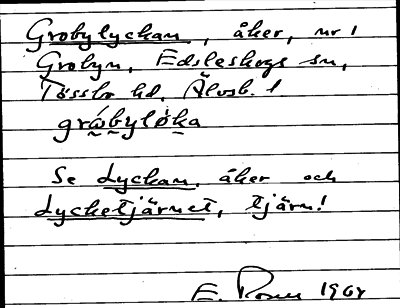 Grobylyckan, åker, nr 1
Grobyn, Edsleskogs sn,
Tössbo hd, Älvsb. l
gråbylø̀ka
Se Lyckan, åker och
Lycketjärnet, tjärn!
E. 1964